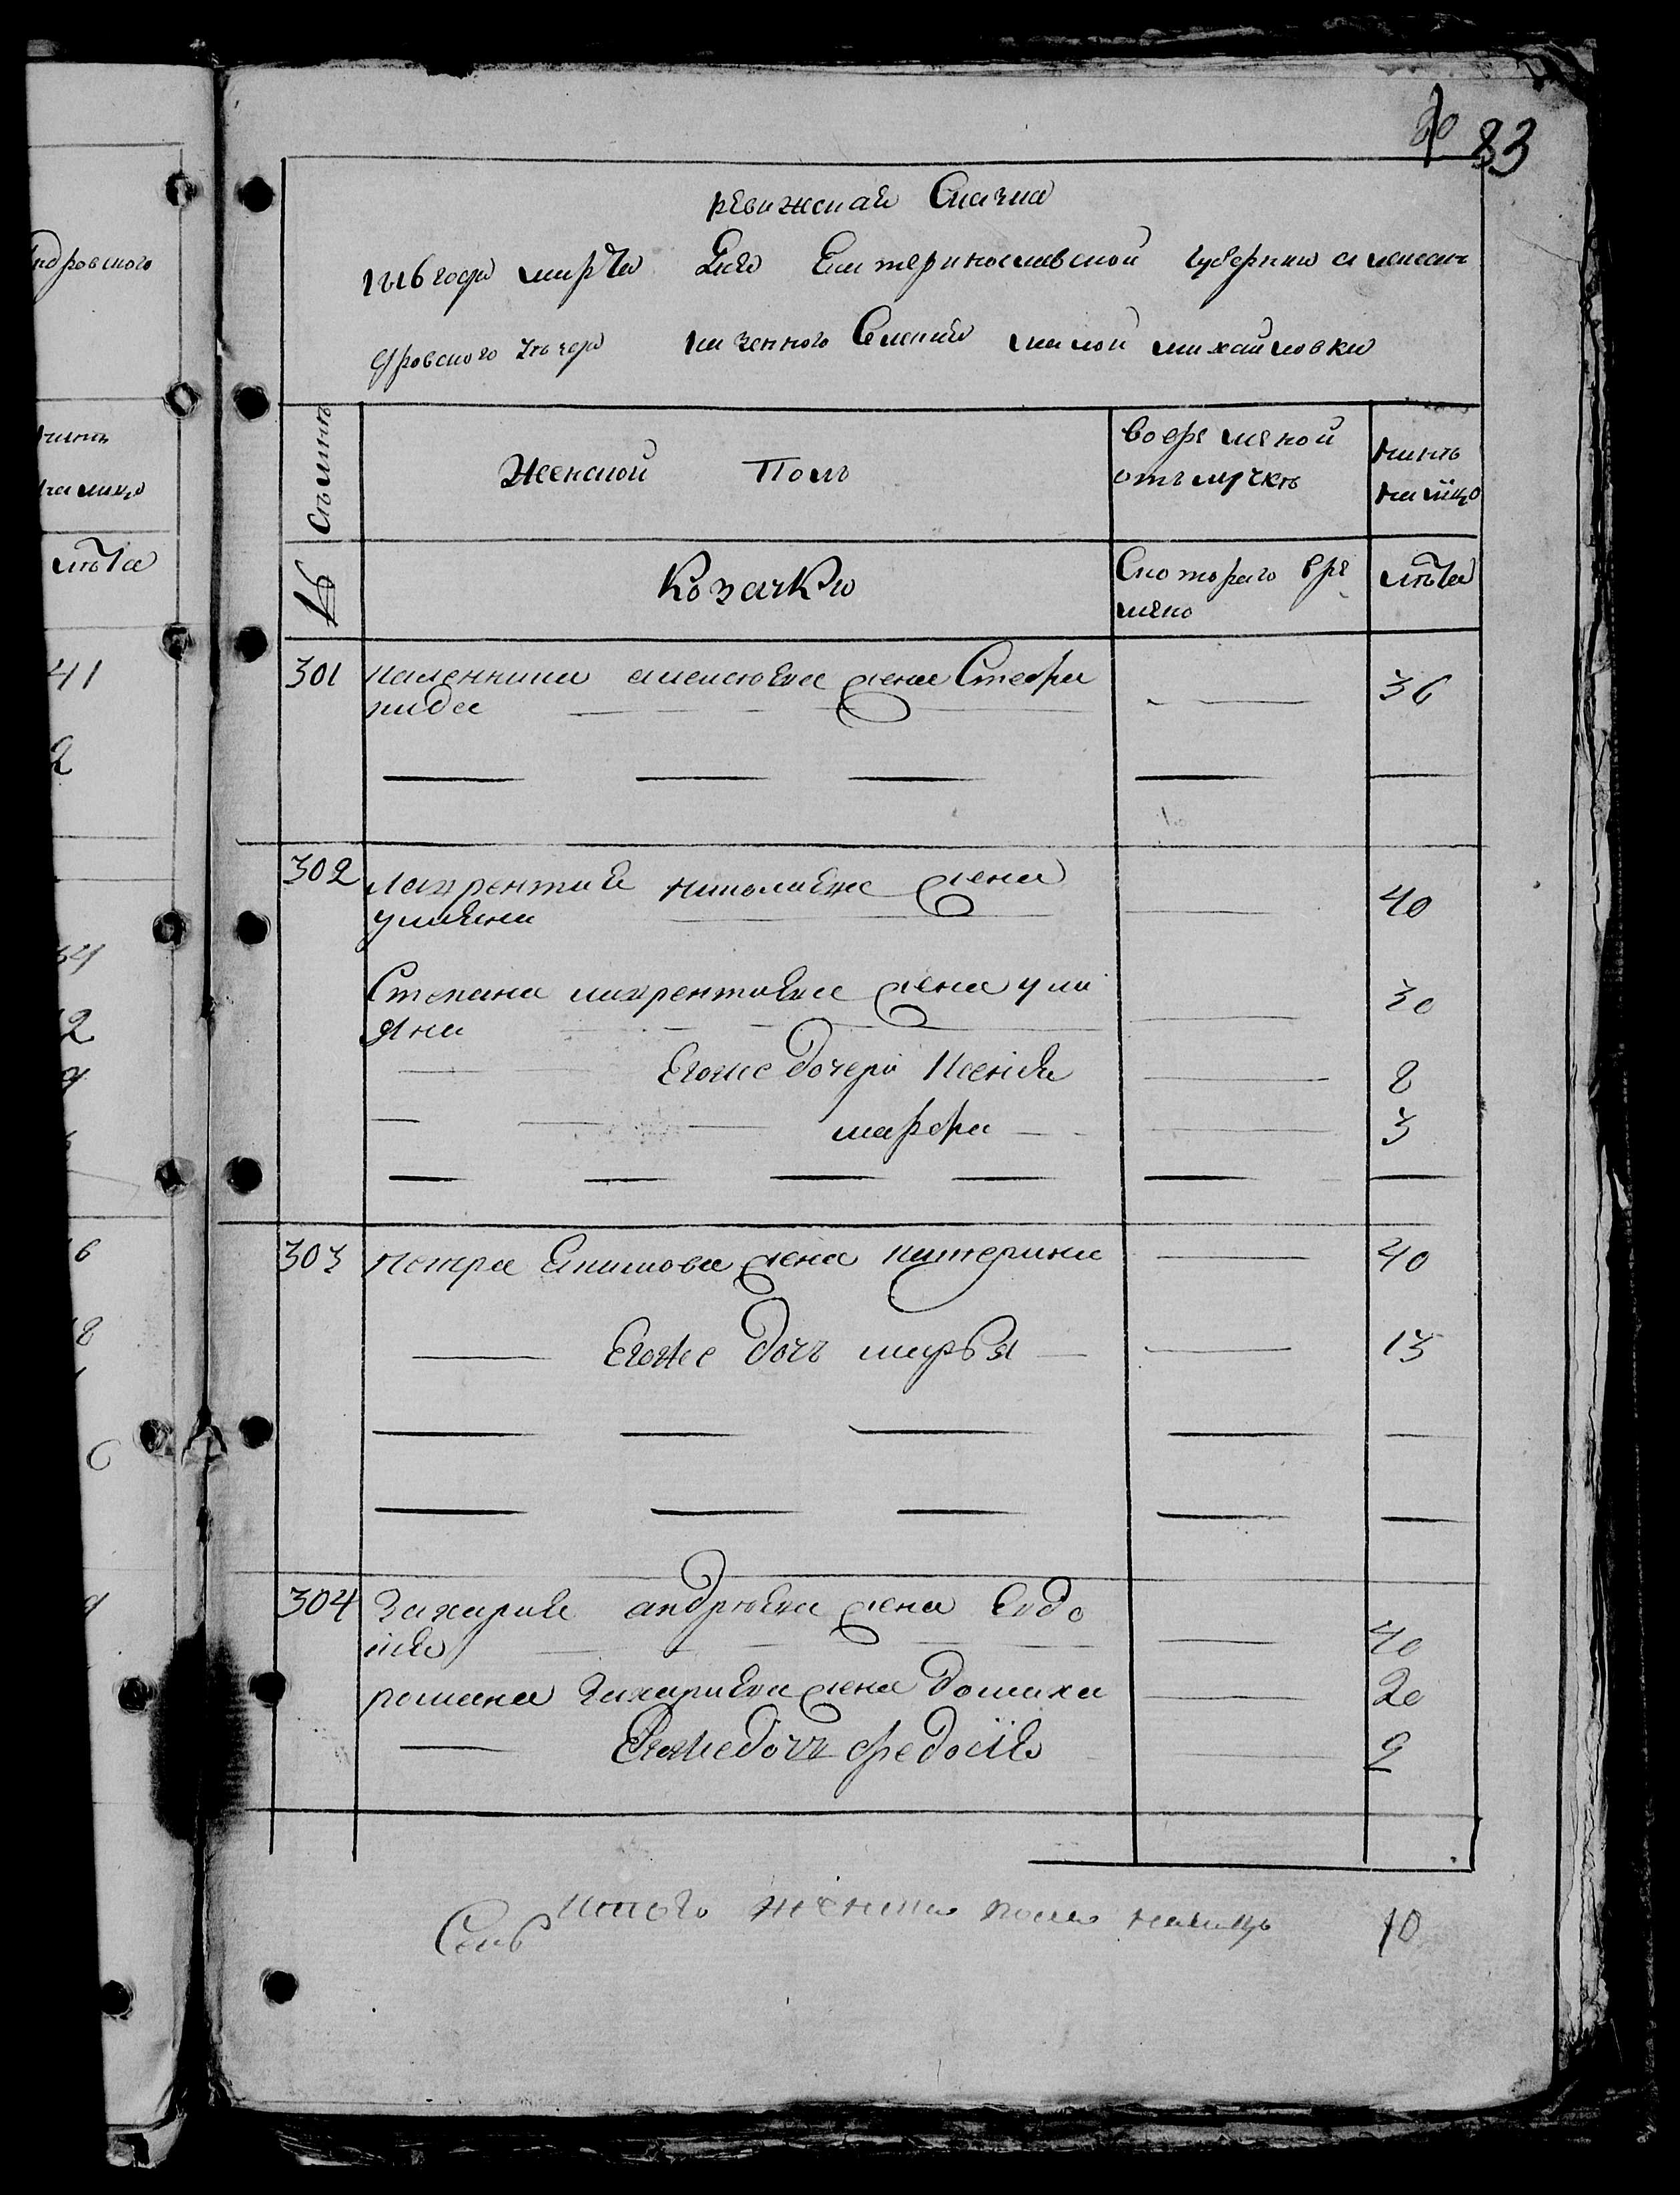 83
ревижская Скаска
1816 года марта Дня Екатеринославской губернии александ
ровского уезда казенного Селения малой михайловки
Семьи
Женской Полъ
во временой
отълучкѣ
нынѣ
на лицо
№
Козачки
Скотораго вре
мено
лѣта
301 каленника алексеева жена Стефа
нида 36
302 лаврентия николаева жена
улияна 40
Степана лаврентиева жена ули
яна 30
Егоже дочери Ксения 8
марфа 3
303 петра Екимова жена катерина 40
Егоже дочь марья 13
304 захария андреева жена Евдо
кия 40
романа захариева жена домаха 20
Егоже дочь федосия 9
итого женска пола налицо 10
ндровского
нынѣ
на лицо
лѣта
41
2